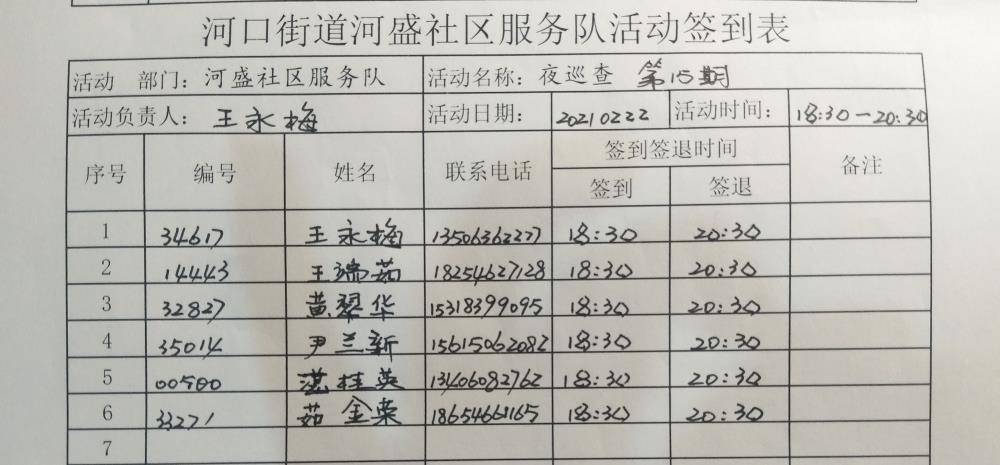 河口街道河盛社区服务队活动签到表
活动 部门: 河盛社区服务队 活动名称: 夜巡查 第15期
活动负责人: 王永梅 活动日期: 20210222 活动时间: 18:30-20:30
序号 编号 姓名 联系电话 签到签退时间 备注
签到 签退
1 34617 王永梅 13506362227 18:30 20:30
2 14443 王瑞茹 18254627128 18:30 20:30
3 32827 黄翠华 15318399095 18:30 20:30
4 35014 尹兰新 15615062082 18:30 20:30
5 00500 桂英 13406082762 18:30 20:30
6 33271 茹金荣 18654661165 18:30 20:30
7